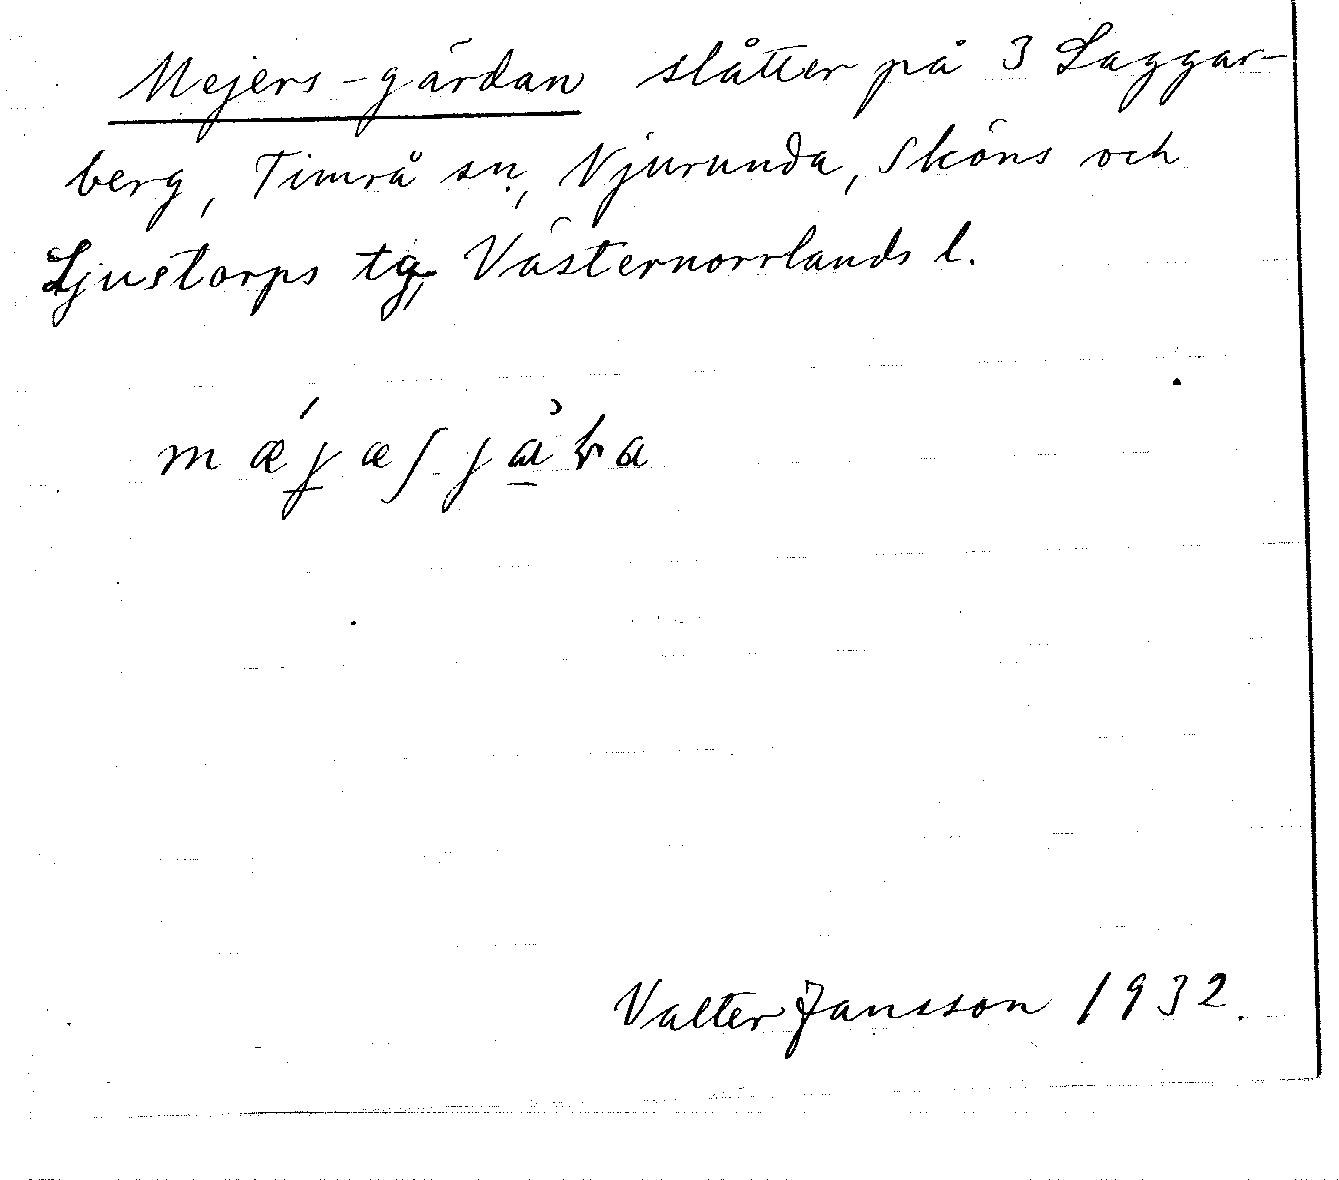 Mejers-gärdan slåtter på 3 Laggar-
berg, Timrå sn, Njurunda, Sköns och
Ljustorps tg, Västernorrlands l.
Valter Jansson 1932.